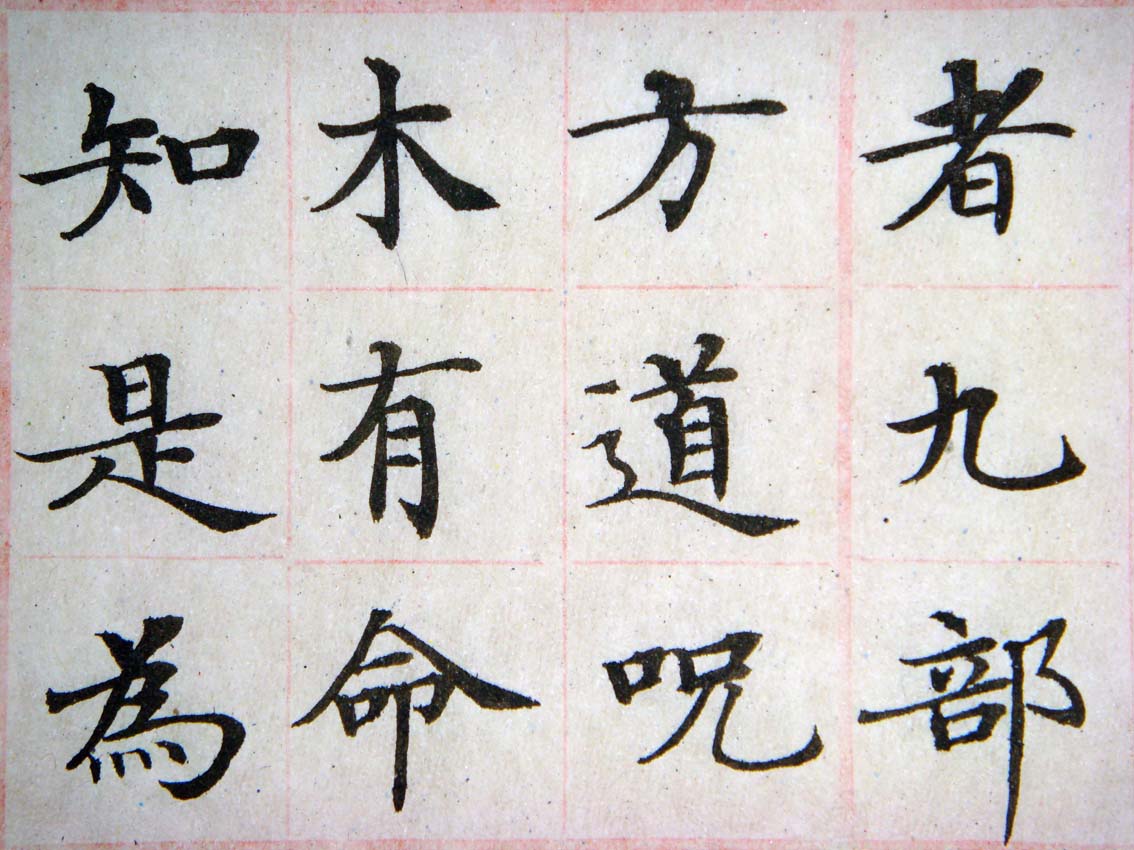 者九部
方道呪
木有命
知是為